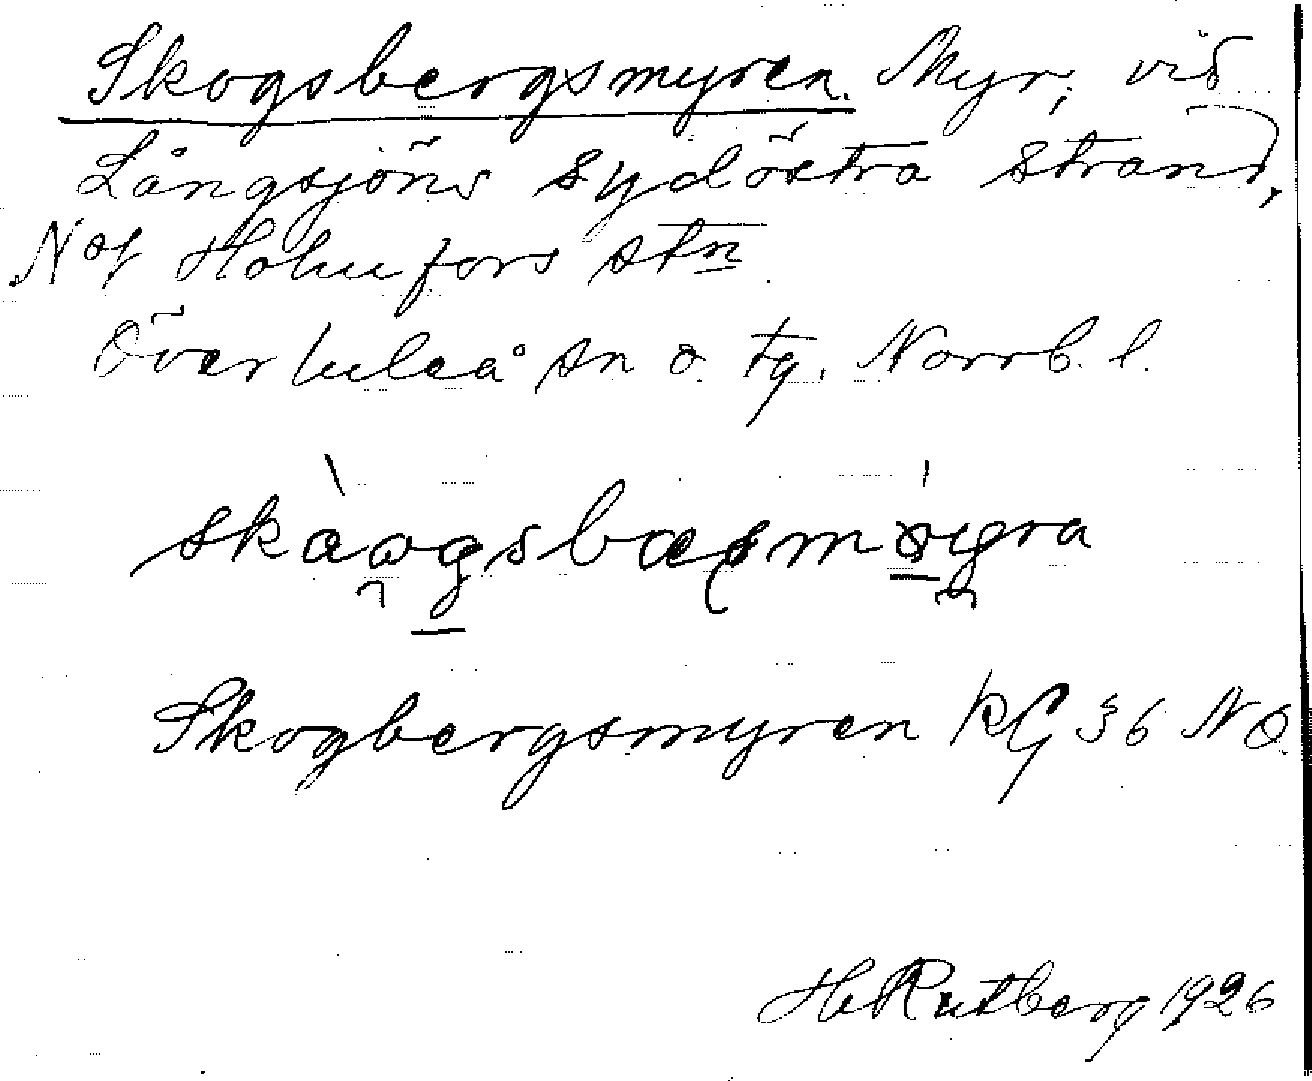 Skogsbergsmyren. Myr, vid
Långsjöns sydöstra strand,
N of Holmfors stn
Överluleå sn o. tg. Norrb. l.
Skogbergsmyren KG 36 NO.
H Rutberg 1926